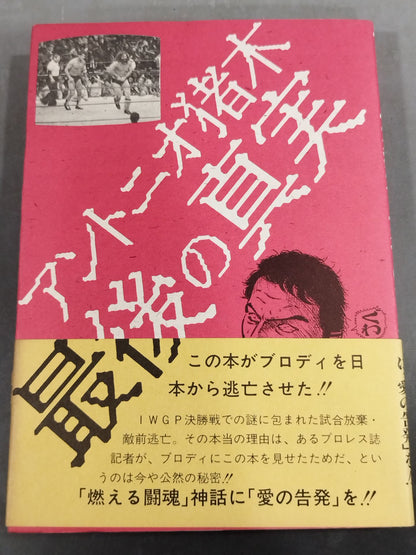 アントニオ猪木
最後の真実
この本がブロディを日
本から逃亡させた!!
IWGP決勝戦での謎に包まれた試合放棄・
敵前逃亡。その本当の理由は、あるプロレス誌
記者が、ブロディにこの本を見せたためだ、とい
うのは今や公然の秘密!!
「燃える闘魂」神話に「愛の告発」を!!